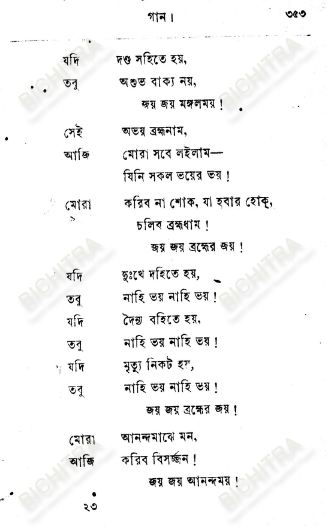 গান। ৩৫৩
যদি দণ্ড সহিতে হয়,
তবু অশুভ বাক্য নয়,
জয় জয় মঙ্গলময়!
সেই অভয় ব্রহ্মনাম,
আজি মোরা সবে লইলাম—
যিনি সকল ভয়ের ভয়!
মোরা করিব না শোক, যা হবার হোক্,
চলিব ব্রহ্মধাম!
জয় জয় ব্রহ্মের জয়!
যদি দুঃখে দহিতে হয়,
তবু নাহি ভয় নাহি ভয়!
যদি দৈন্য বহিতে হয়,
তবু নাহি ভয় নাহি ভয়!
যদি মৃত্যু নিকট হয়,
তবু নাহি ভয় নাহি ভয়!
জয় জয় ব্রহ্মের জয়!
মোরা আনন্দমাঝে মন,
আজি করিব বিসর্জ্জন!
জয় জয় আনন্দময়!
২৩
BICHITRA
BICHITRA
BICHITRA
BICHITRA
BICHITRA
BICHITRA